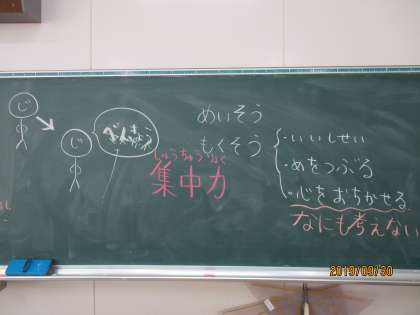 じ
じ
べんきょう
めいそう
もくそう
しゅうちゅうりょく
集中力
・いいしせい
・めをつぶる
・心をおちつかせる
なにも考えない
2019/09/30